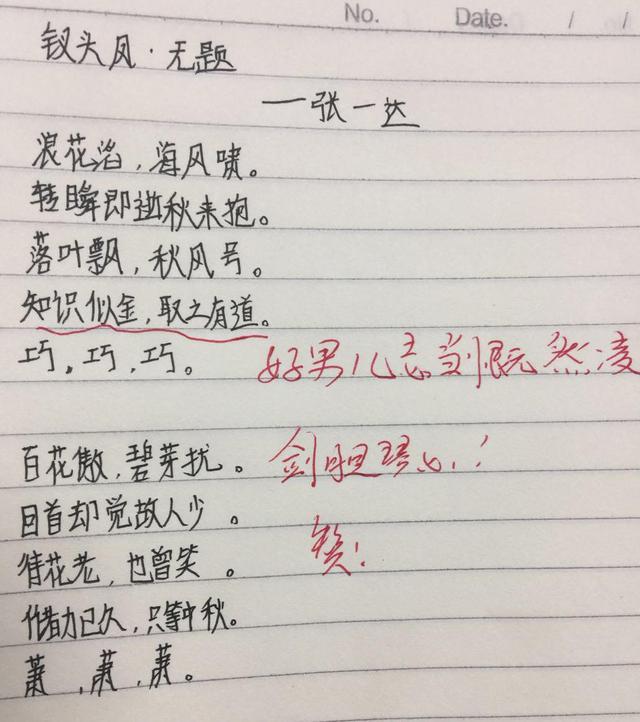 No. Date. / /
钗头凤·无题
——张一达
浪花滔，海风啸。
转瞬即逝秋来抱。
落叶飘，秋风号。
知识似金，取之有道。
巧，巧，巧。
好男儿志当凌
百花傲，碧芽扰。
剑胆琴心！
回首却觉故人少。
待花老，也曾笑。
赞！
储力已久，只等中秋。
萧，萧，萧。